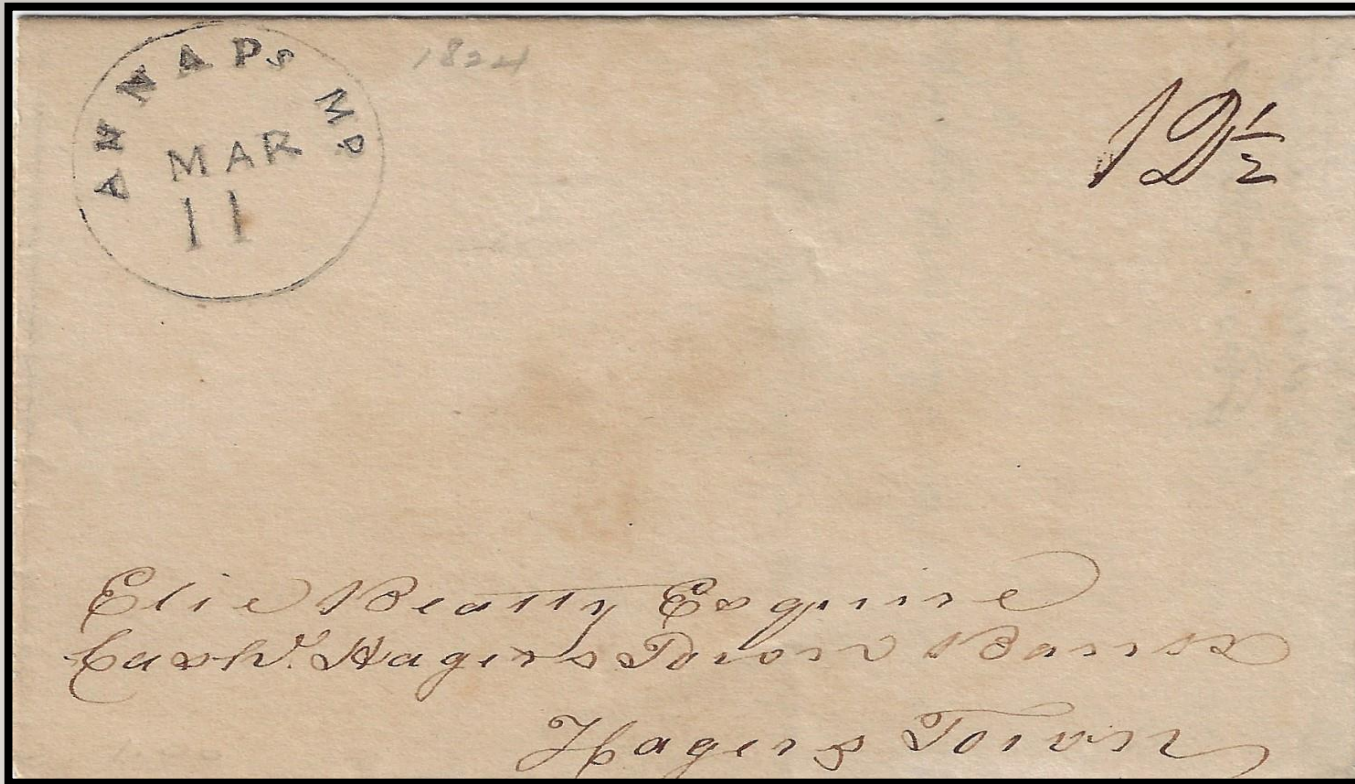 ANNAPs MD.
MAR
11
1824
12½
Elie Beatty Esquire
Cashr. Hagers Town Bank
Hagers Town